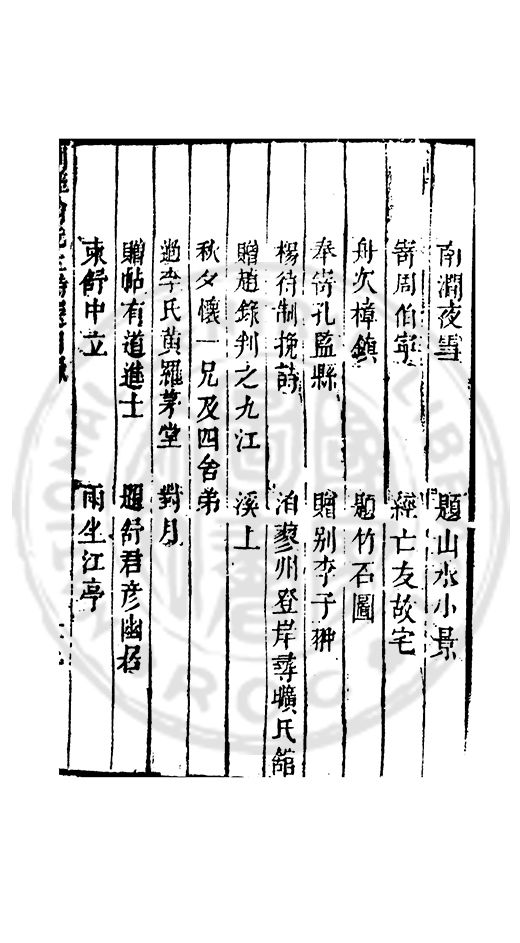 南澗夜雪 題山水小景
寄周伯寧 經亡友故宅
舟次樟鎮 題竹石圖
奉寄孔監縣 贈别李子翀
楊待制挽詩 泊蓼州登岸尋曠氏館
贈趙錄判之九江 溪上
秋夕懷一兄及四舍弟
過李氏黃羅茅堂 對月
贈帖有道進士 題舒君彦幽栢
柬舒中立 雨坐江亭